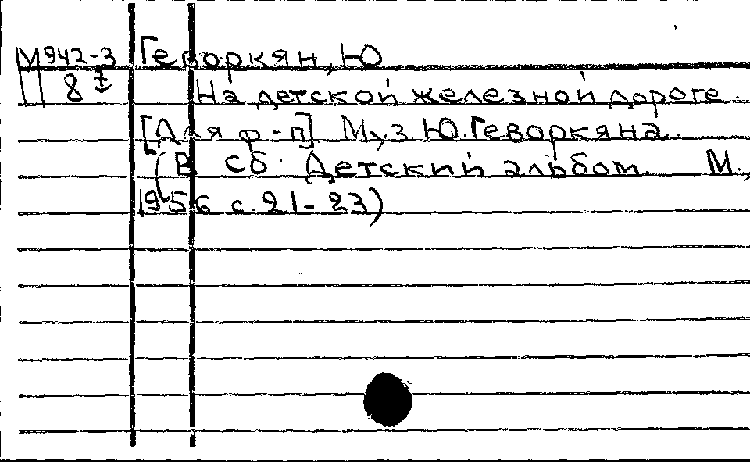 М942-3 Геворкян, Ю
118 На детской железной дороге.
[Для ф-п] Муз Ю.Геворкяна.
(В сб. Детский альбом. М.,
1956 с. 21-23)